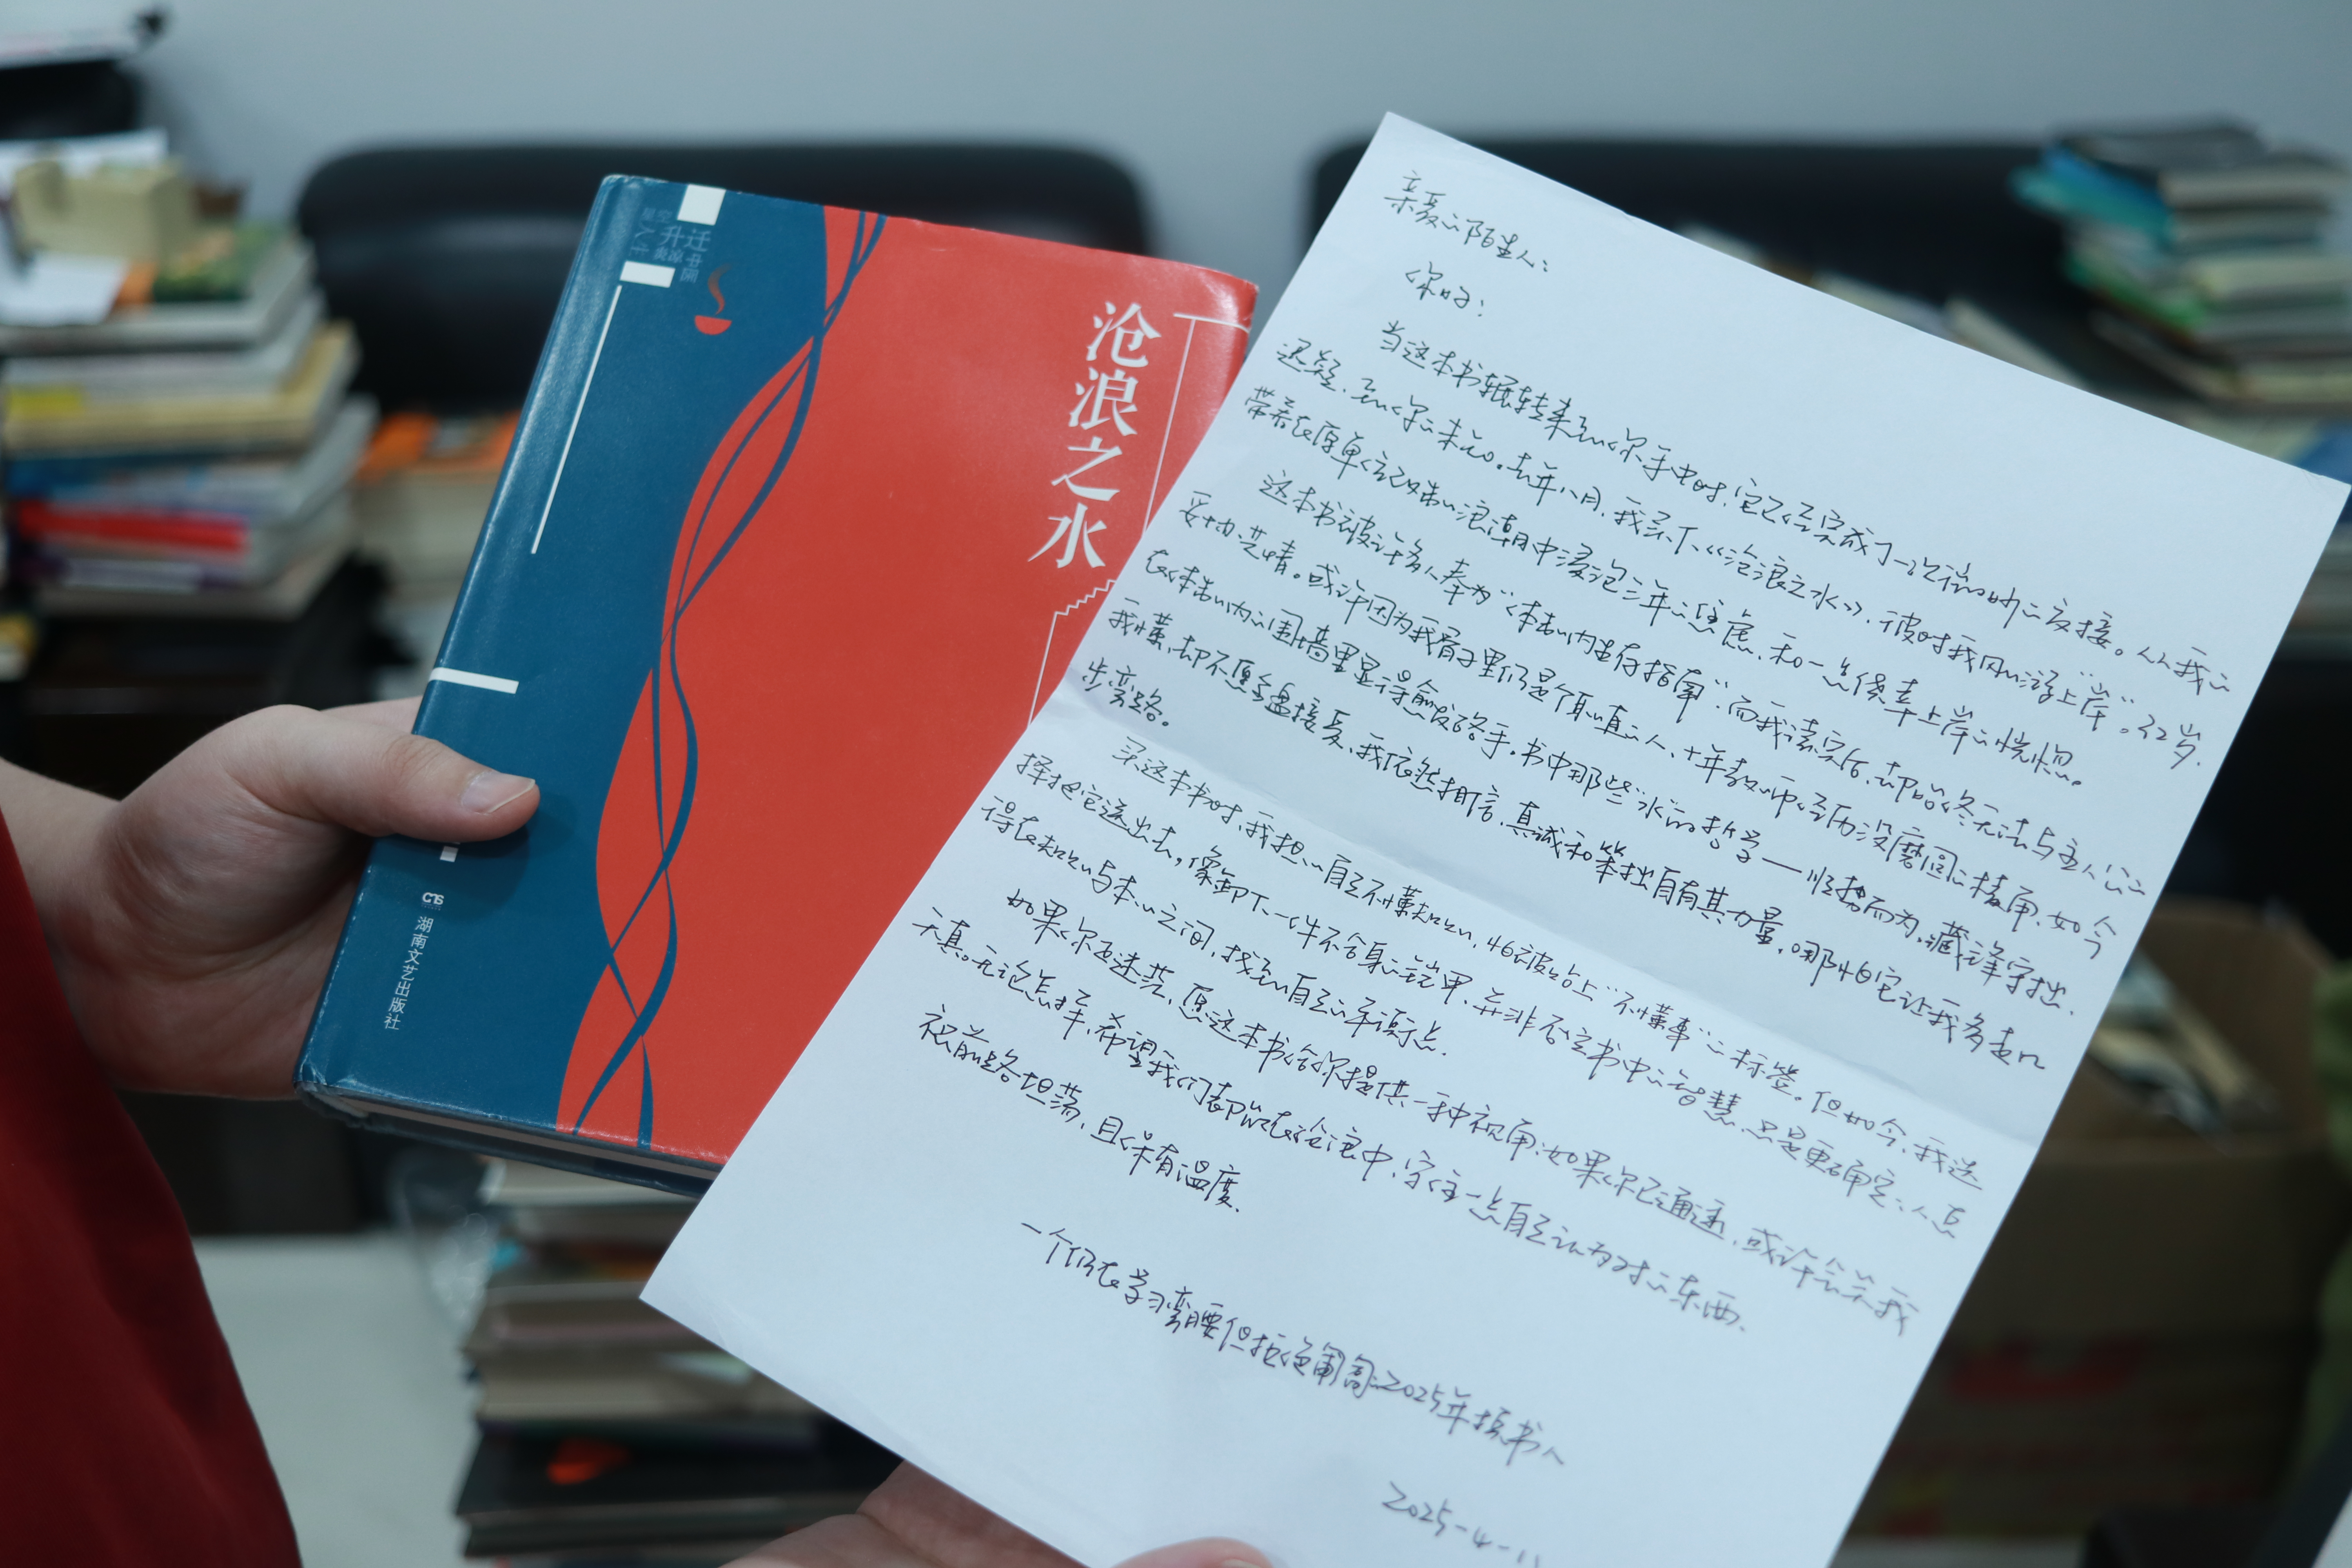 升迁
沧浪之水
CNS
湖南文艺出版社
亲爱的陌生人:
你好:
当这本书辗转来到你手中时,它已经完成了一次微妙的交接。从我的
迟疑,到你的未知。去年八月,我买下《沧浪之水》,彼时我刚刚“上岸”。32岁,
带着在原单位改制的浪潮中浸泡三年的焦虑,和一点侥幸上岸的恍惚。
这本书被许多人奉为“体制内生存指南”,而我读完后,却始终无法与主人公的
妥协共情。或许因为我骨子里仍是个耿直的人,十年教师经历没磨圆的棱角,如今
在体制内的围墙里显得愈发硌手。书中那些“水”的哲学——顺势而为,藏锋守拙,
我懂,却不愿全盘接受,我依然相信,真诚和笨拙自有其力量,哪怕它让我多走几
步弯路。
买这本书时,我担心自己不懂规则,怕被贴上“不懂事”的标签。但如今,我选
择把它送出去,像卸下一件不合身的铠甲,并非否定书中的智慧,只是更确定:人总
得在规则与本心之间,找到自己的平衡点.
如果你还迷茫,愿这本书给你提供一种视角;如果你已通透,或许会笑我
天真。无论怎样,希望我们都能在沧浪中,守住一点自己认为对的东西.
祝前路坦荡,且保有温度.
一个仍在学习弯腰但拒绝匍匐的2025年捐书人
2025-4-11